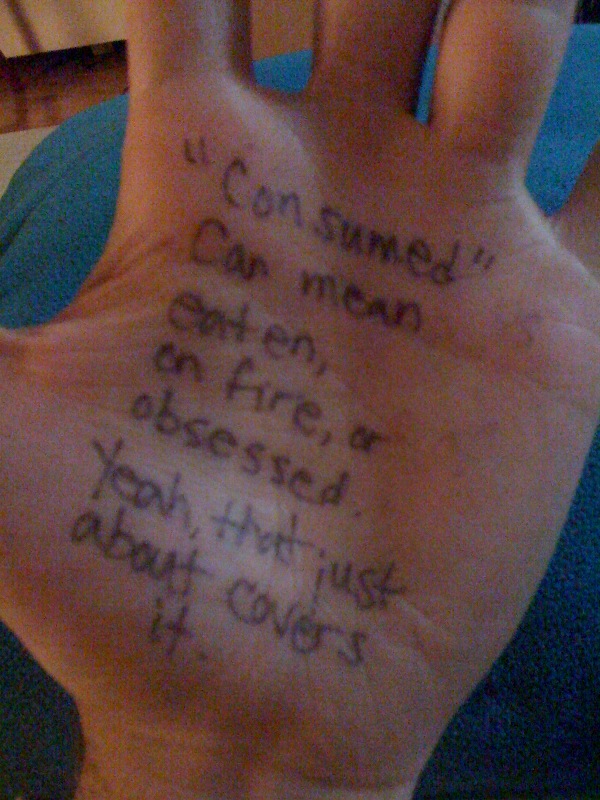 "Consumed"
Can mean
eaten,
on fire, or
obsessed.
Yeah, that just
about covers
it.